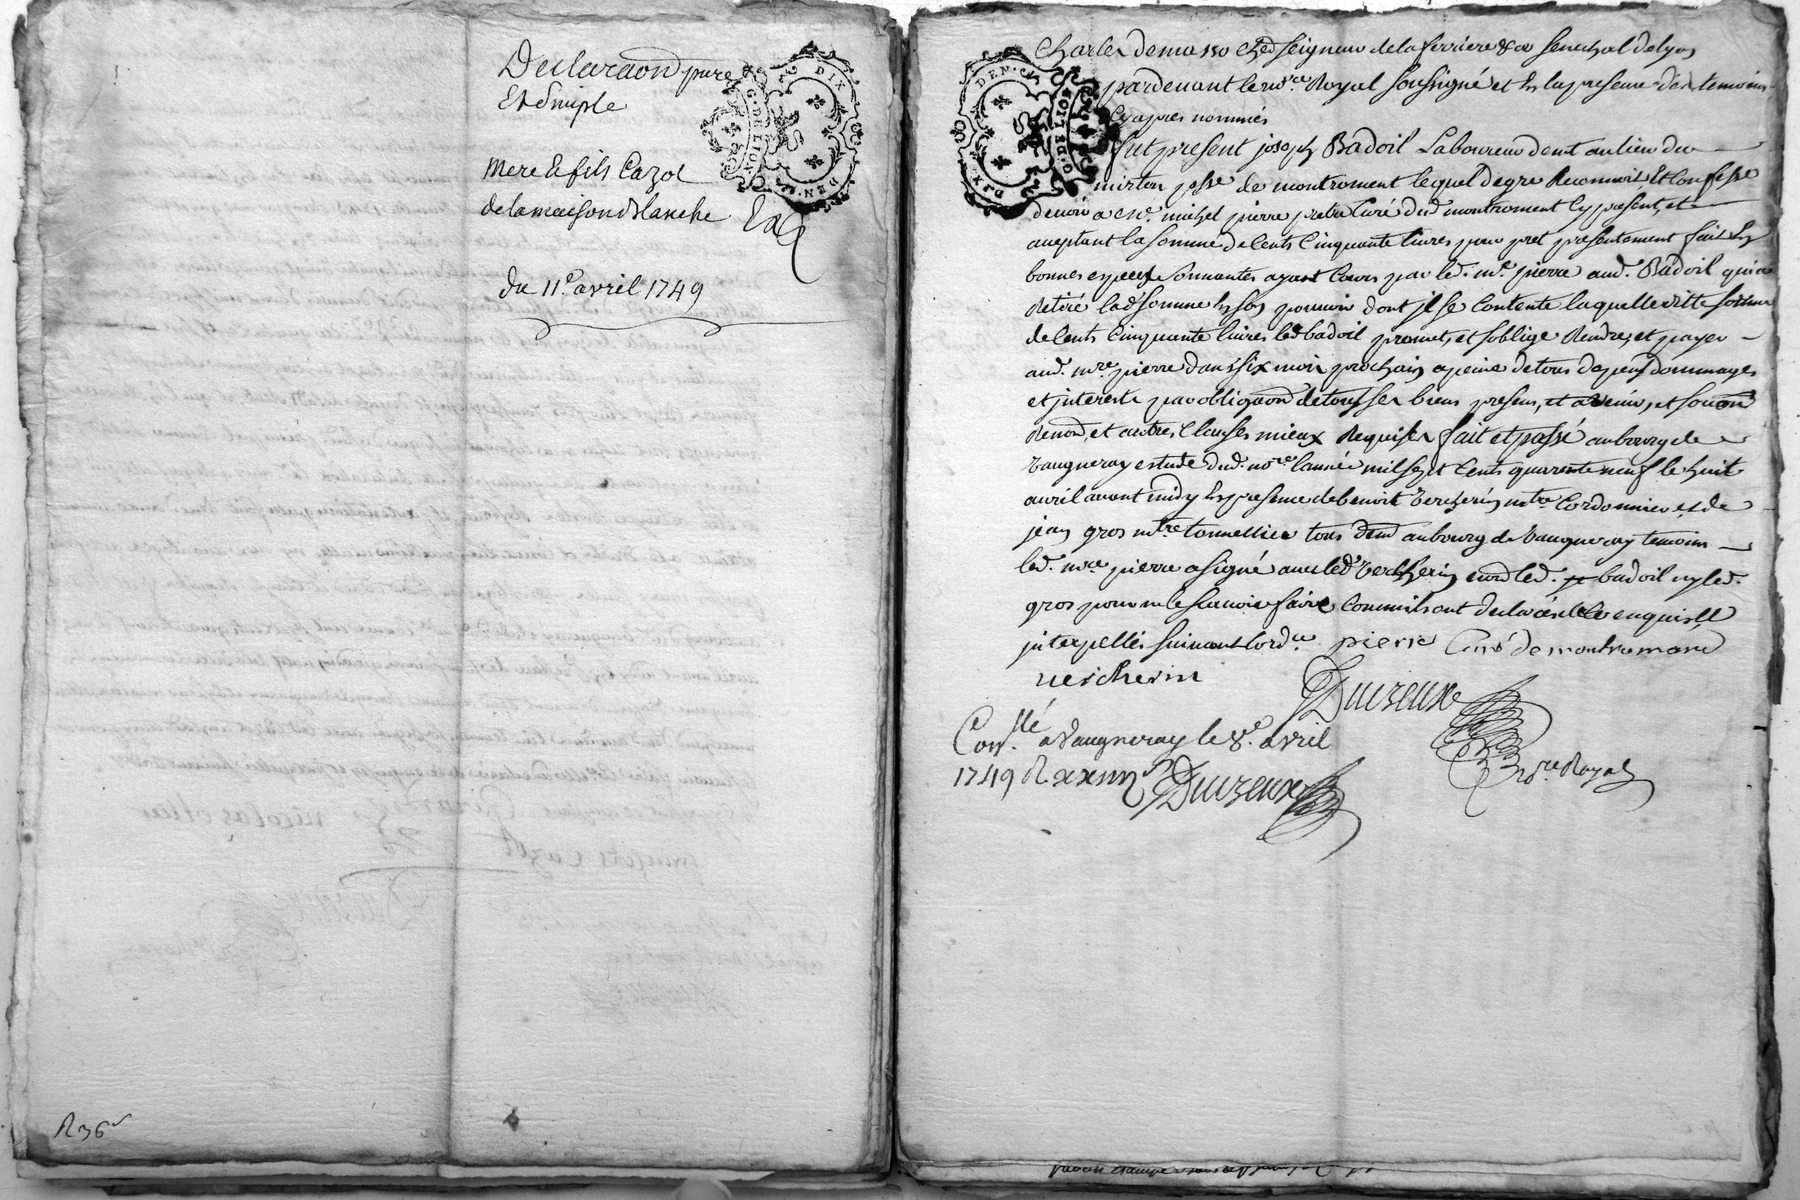 Declaraon pure
Et Simple
mere & fils Cazot
de la maison blanche
du 11e. avril 1749
G. DE LION
DIX
DEN.
R 36s
Charles de masso Ched seigneur de la ferriere &a senechal de lyon
pardevant le nore. Royal soussigné et En la presence des temoins
Cy apres nommés
DEN.
G. DE LION
DIX DEN.
fut present joseph Badoil Laboureur demt au lieu du
mirton psse de montroment lequel de gre Reconnoit, Et Confesse
devoir a mre. michel pierre pretre Curé dud montroment Cy present, et
aceptant la somme de Cents Cinquante livres pour pret presentement fait En
bonnes especes sonnantes ayant Cours par led. mre. pierre aud. Badoil qui a
Retiré lad somme En son pouvoir dont il se Contente laquelle ditte somme
de Cents Cinquante livres led badoil promet, et soblige Rendre, et payer
aud. mre. pierre dans six mois prochain a peine de tous depens dommages
et jnterets par obligaon de tous ses biens presens, et avenir, et
Renon, et autres Clauses mieux Requises fait et passé au bourg de
Vaugneray estude dud. nore. lannée mil sept Cents quarente neuf le huit
avril avant midy En presence de benoit Vercherin mtre Cordonnier et de
jean gros mtre tonnellier tous demt au bourg de Vaugneray temoins
led. mre pierre a signé avec led Vercherin non led. badoil ny led.
gros pour ne le scavoir faire Comme ils ont declaré de ce enquis et
jnterpellés suivant lordce pierre Curé de montromand
vercherin
Duizeux
nore Royal
Conllé a Vaugneray le 8e. avril
1749 R
Duizeux